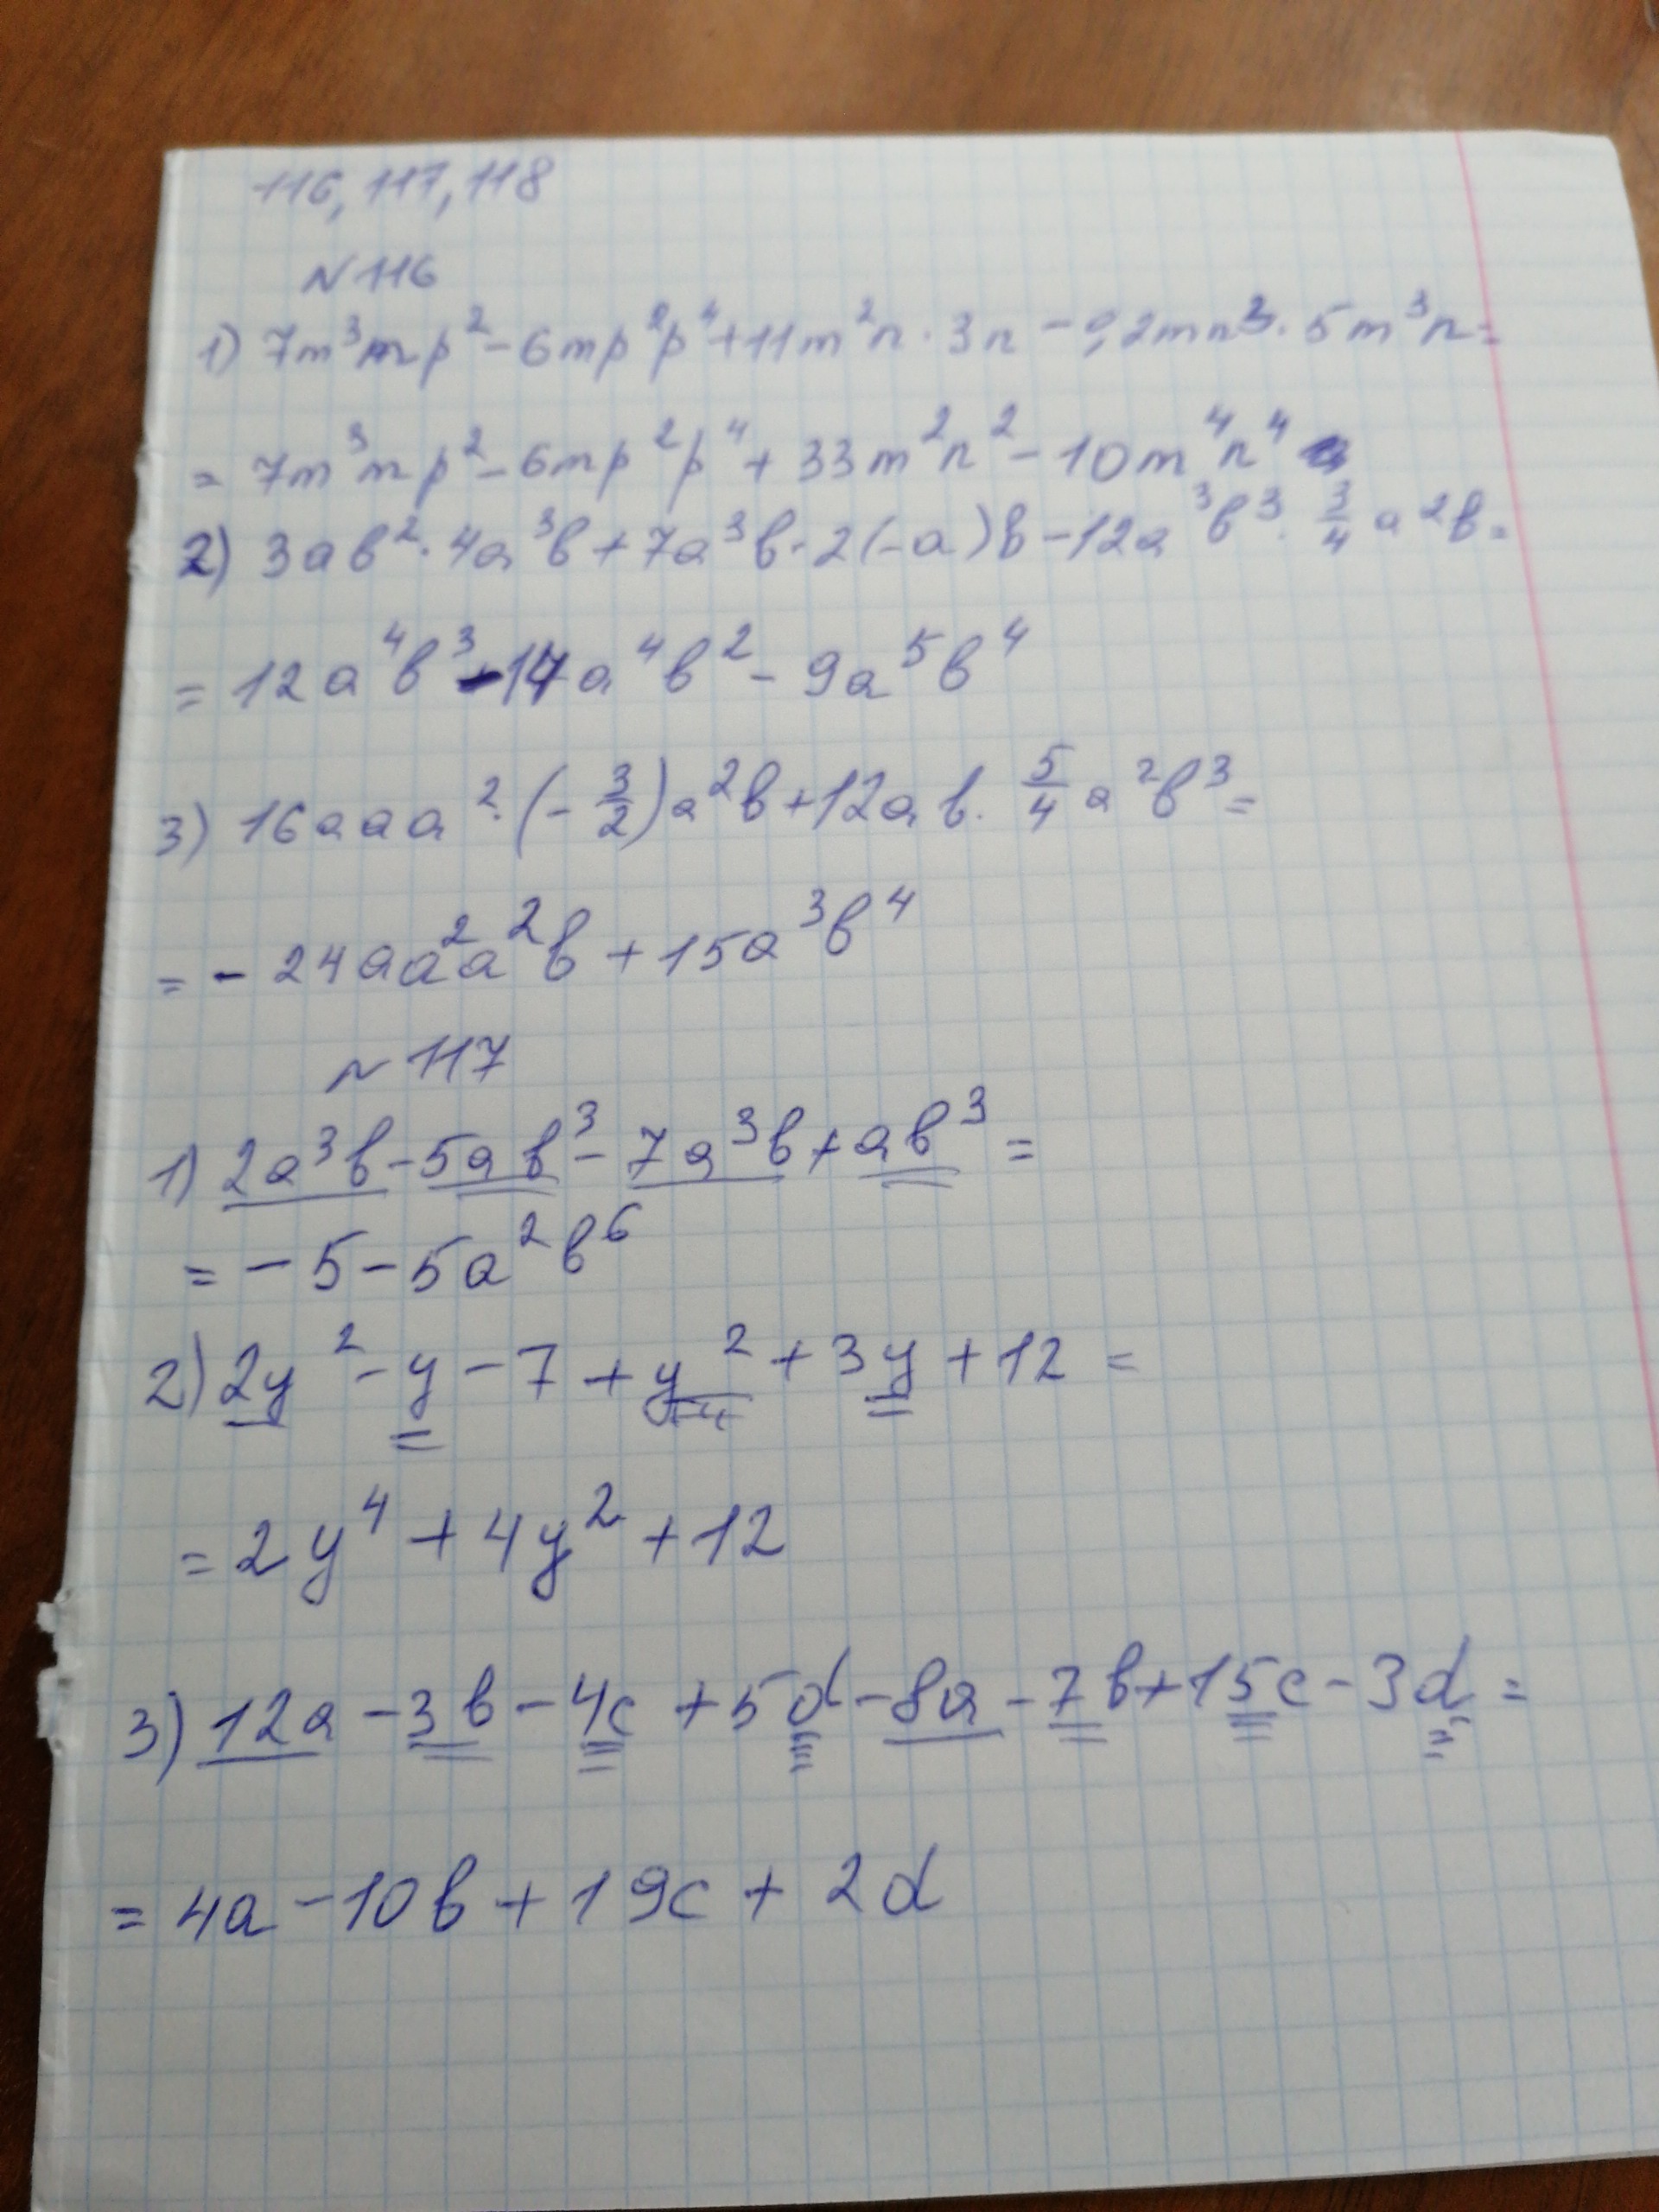 116, 117, 118
N 116
1) 7m³mp² - 6mp²p⁴ + 11m²n · 3n - 0,2mn³ · 5m³n =
= 7m³mp² - 6mp²p⁴ + 33m²n² - 10m⁴n⁴
2) 3ab² · 4a³b + 7a³b · 2(-a)b - 12a³b³ · 3/4 a²b =
= 12a⁴b³ - 14a⁴b² - 9a⁵b⁴
3) 16aaa² · (-3/2)a²b + 12ab · 5/4 a²b³ =
= - 24aa²a²b + 15a³b⁴
N 117
1) 2a³b - 5ab³ - 7a³b + ab³ =
= - 5 - 5a²b⁶
2) 2y² - y - 7 + y² + 3y + 12 =
= 2y⁴ + 4y² + 12
3) 12a - 3b - 4c + 5d - 8a - 7b + 15c - 3d =
= 4a - 10b + 19c + 2d